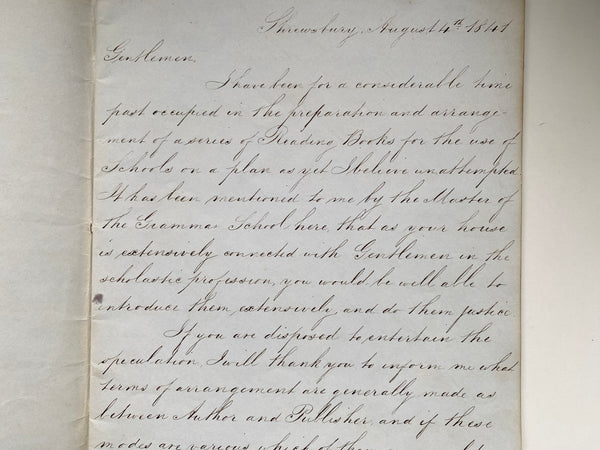 Shrewsbury, August 4th 1841
Gentlemen,
I have been for a considerable time
past occupied in the preparation and arrange-
ment of a series of Reading Books for the use of
Schools on a plan as yet I believe unattempted.
It has been mentioned to me by the Master of
the Grammar School here, that as your house
is extensively connected with Gentlemen in the
scholastic profession, you would be well able to
introduce them extensively, and do them justice
If you are disposed to entertain the
speculation, I will thank you to inform me what
terms of arrangement are generally made as
between Author and Publisher, and if these
modes are various which of them